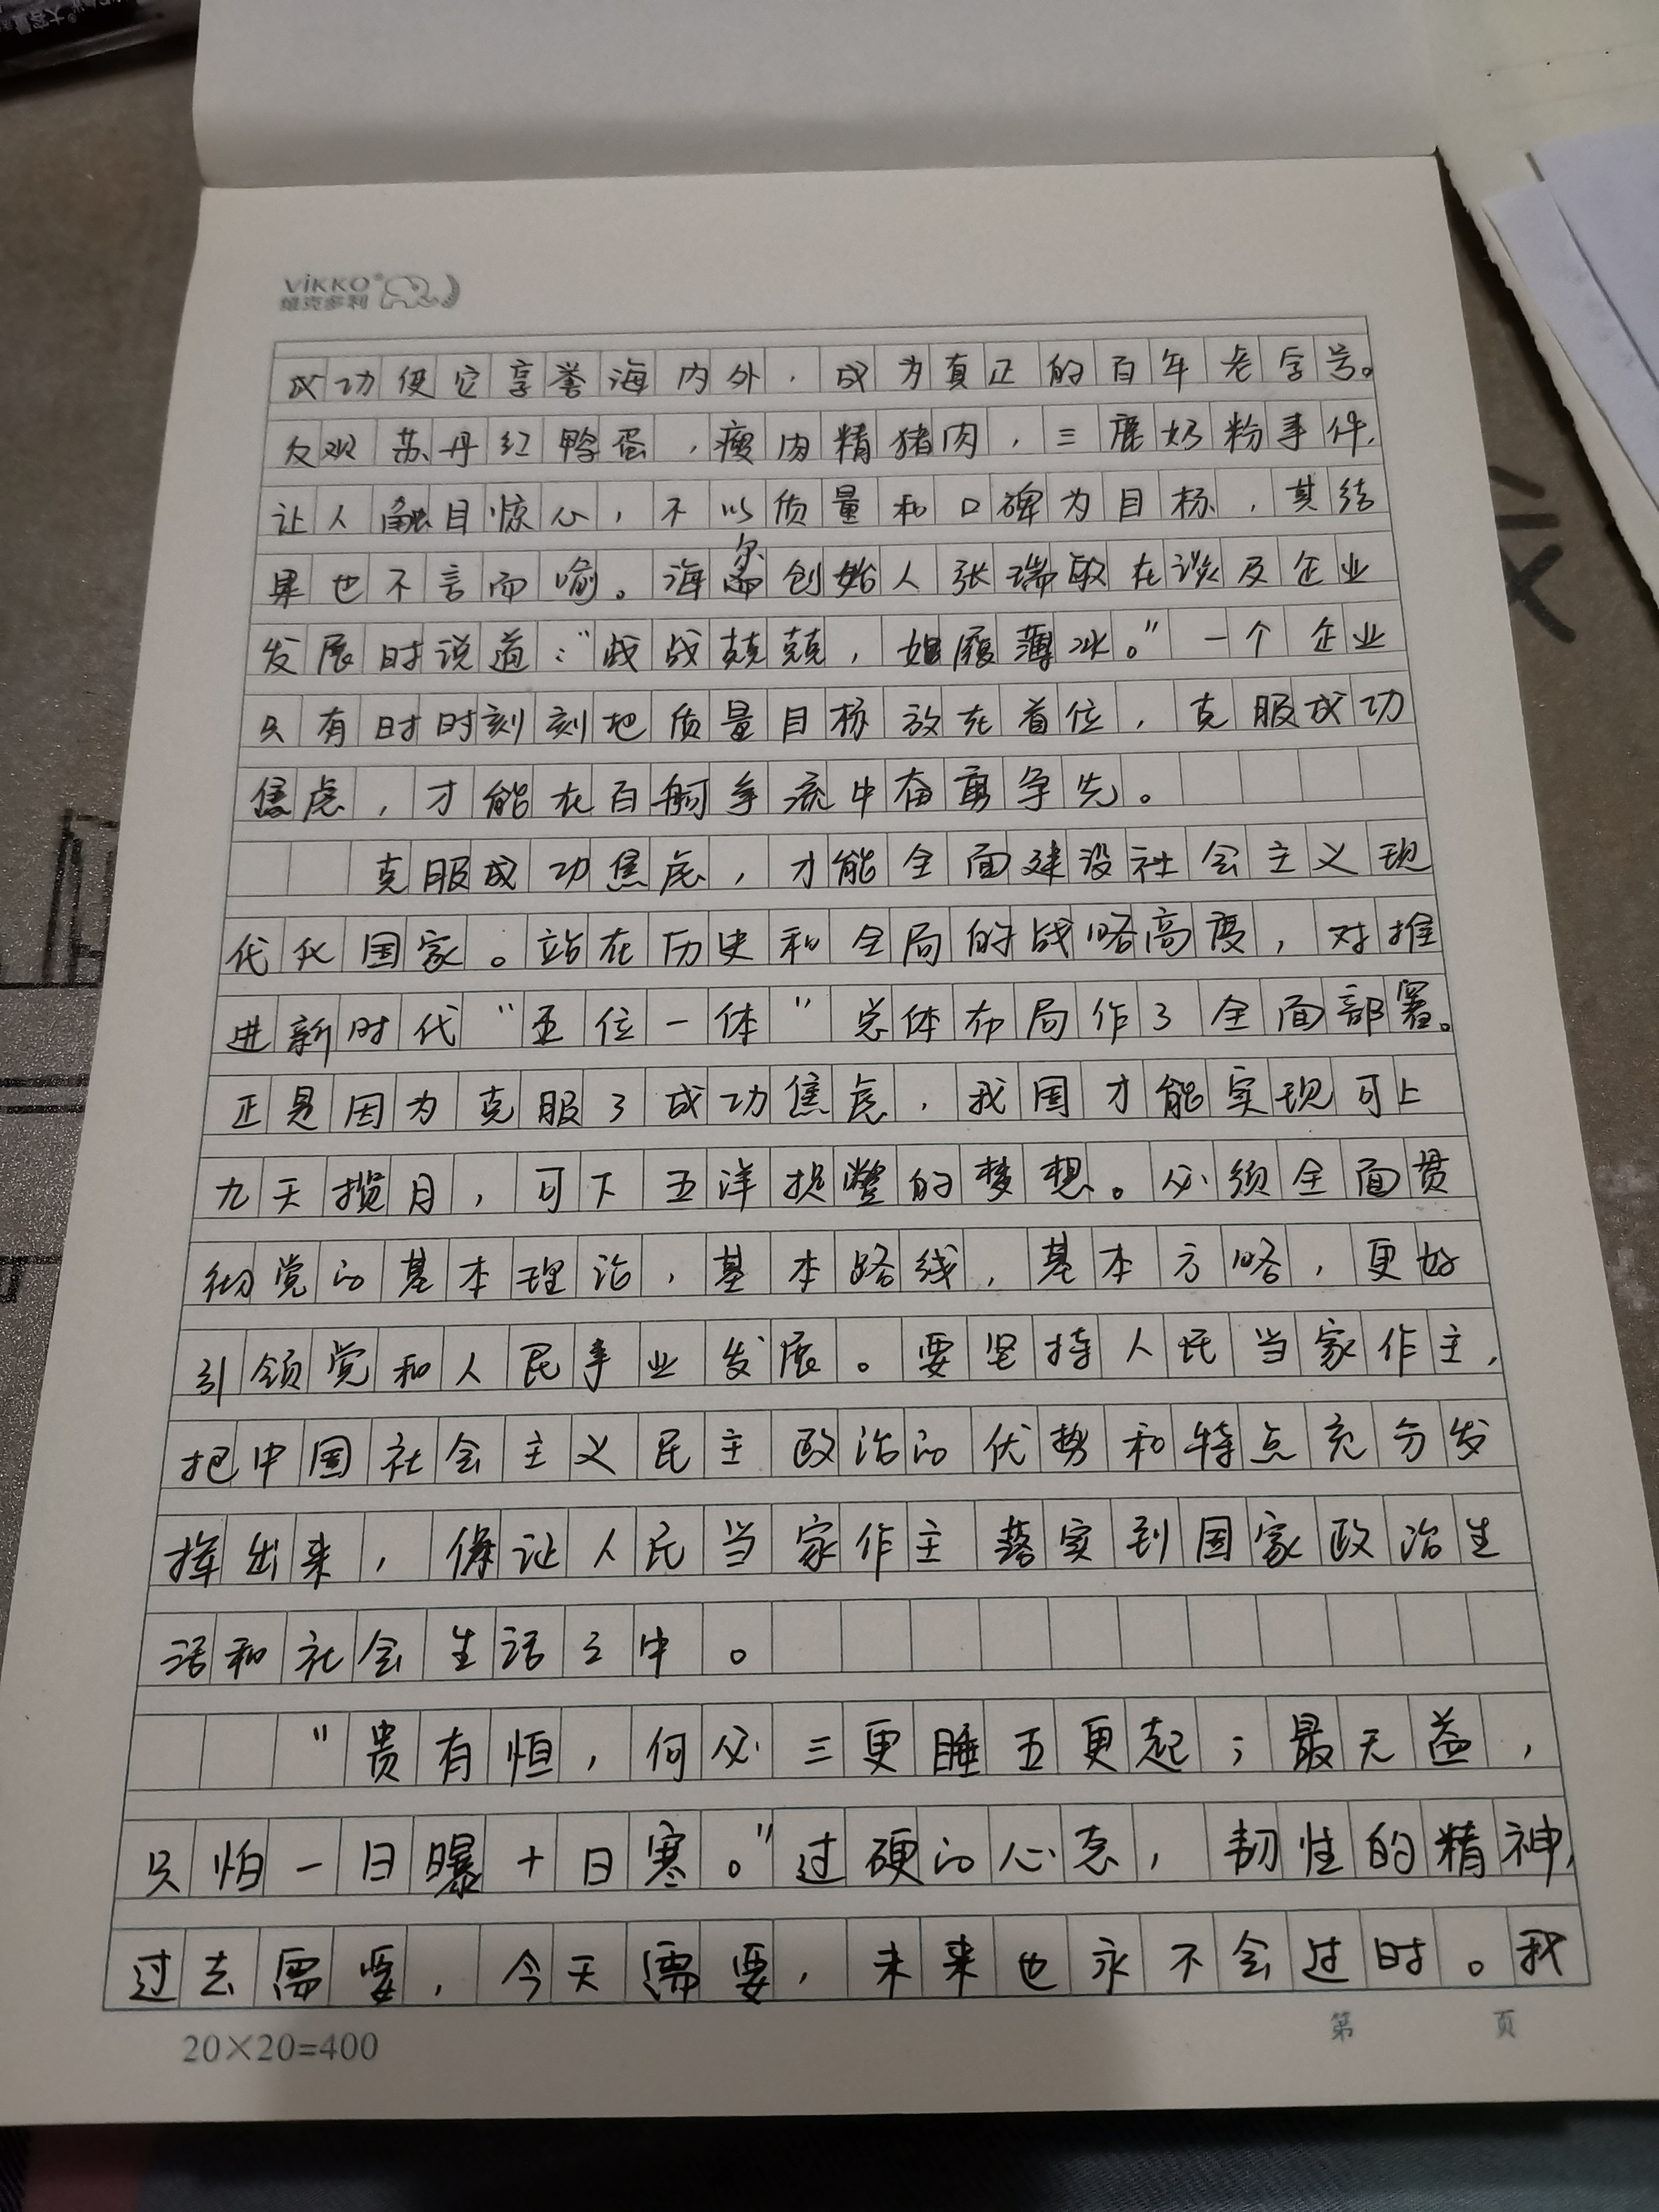 VIKKO®
维克多利
成功使它享誉海内外，成为真正的百年老字号。
反观苏丹红鸭蛋，瘦肉精猪肉，三鹿奶粉事件，
让人触目惊心，不以质量和口碑为目标，其结
果也不言而喻。海尔创始人张瑞敏在谈及企业
发展时说道：“战战兢兢，如履薄冰。”一个企业
只有时时刻刻把质量目标放在首位，克服成功
焦虑，才能在百舸争流中奋勇争先。
克服成功焦虑，才能全面建设社会主义现
代化国家。站在历史和全局的战略高度，对推
进新时代“五位一体”总体布局作了全面部署。
正是因为克服了成功焦虑，我国才能实现可上
九天揽月，可下五洋捉鳖的梦想。必须全面贯
彻党的基本理论，基本路线，基本方略，更好
引领党和人民事业发展。要坚持人民当家作主，
把中国社会主义民主政治的优势和特点充分发
挥出来，保证人民当家作主落实到国家政治生
活和社会生活之中。
“贵有恒，何必三更睡五更起；最无益，
只怕一日曝十日寒。”过硬的心态，韧性的精神，
过去需要，今天需要，未来也永不会过时。我
20×20=400
第 页